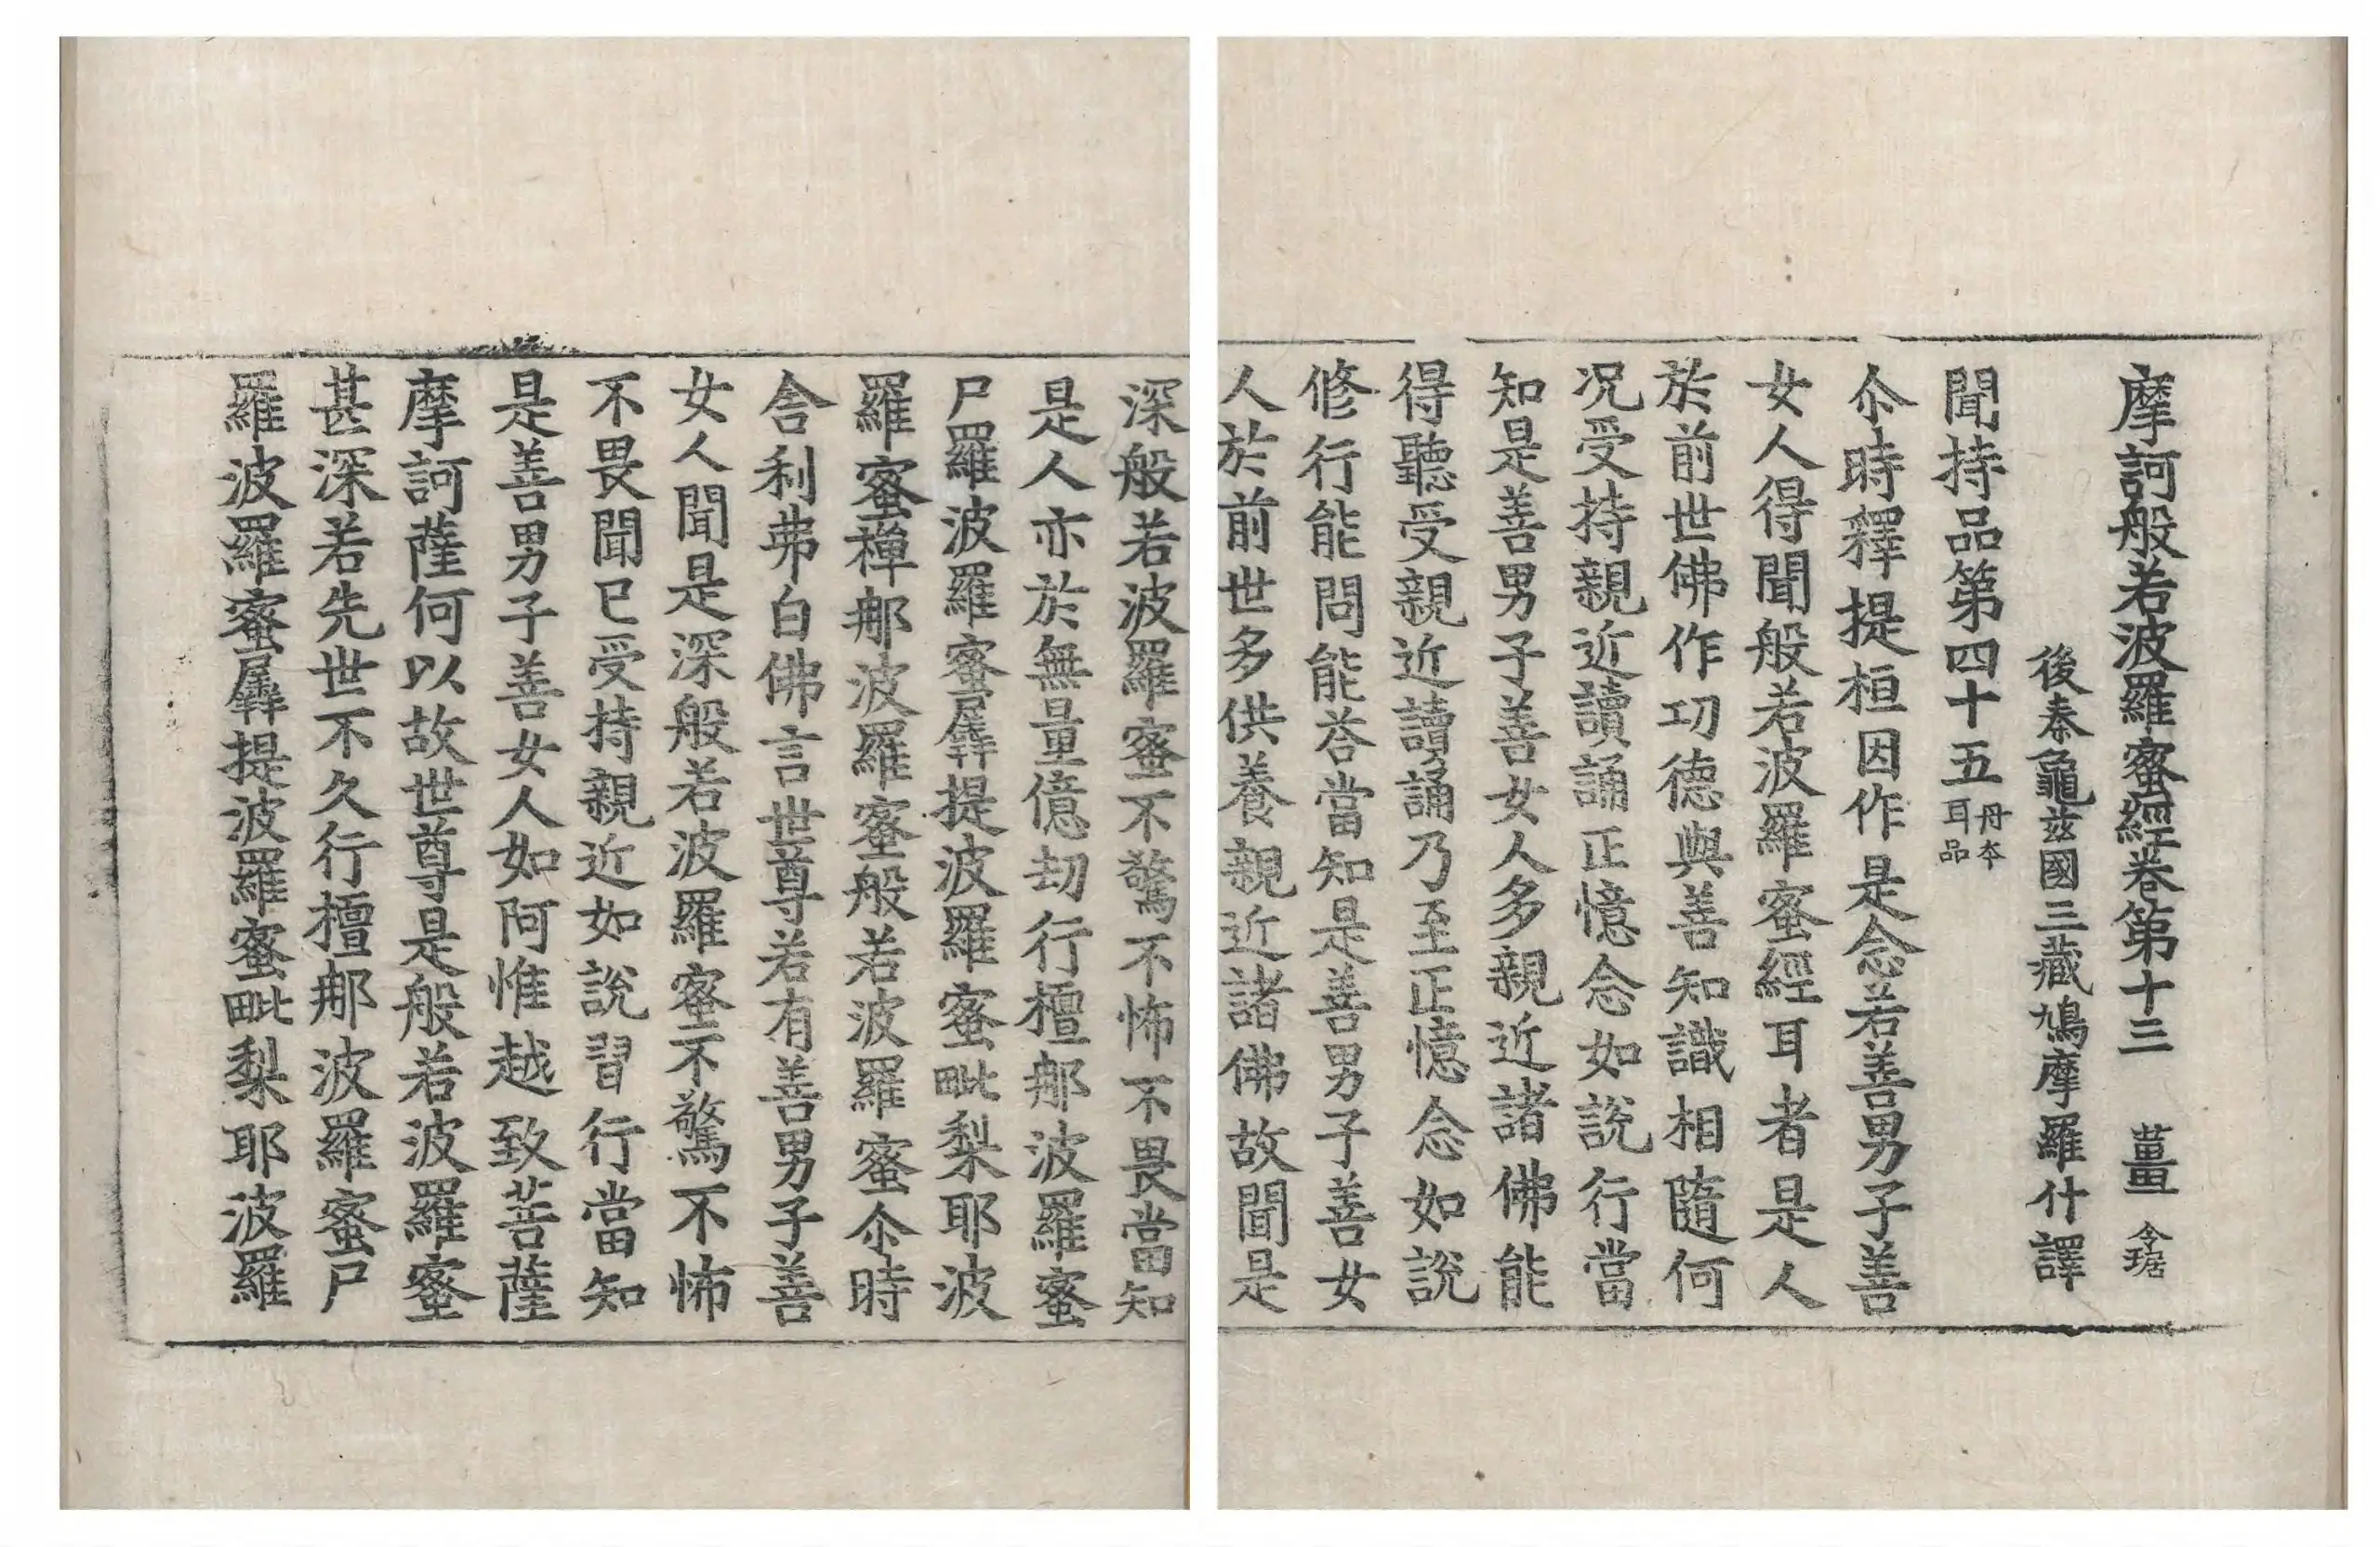 摩訶般若波羅蜜經卷第十三 薑 令琚
後秦龜茲國三藏鳩摩羅什譯
聞持品第四十五 丹本耳品
尒時釋提桓因作是念若善男子善
女人得聞般若波羅蜜經耳者是人
於前世佛作功德與善知識相隨何
况受持親近讀誦正憶念如說行當
知是善男子善女人多親近諸佛能
得聽受親近讀誦乃至正憶念如說
修行能問能荅當知是善男子善女
人於前世多供養親近諸佛故聞是
深般若波羅蜜不驚不怖不畏當知
是人亦於無量億劫行檀那波羅蜜
尸羅波羅蜜羼提波羅蜜毗梨耶波
羅蜜禪那波羅蜜般若波羅蜜尒時
舍利弗白佛言世尊若有善男子善
女人聞是深般若波羅蜜不驚不怖
不畏聞已受持親近如說習行當知
是善男子善女人如阿惟越致菩薩
摩訶薩何以故世尊是般若波羅蜜
甚深若先世不久行檀那波羅蜜尸
羅波羅蜜羼提波羅蜜毗梨耶波羅